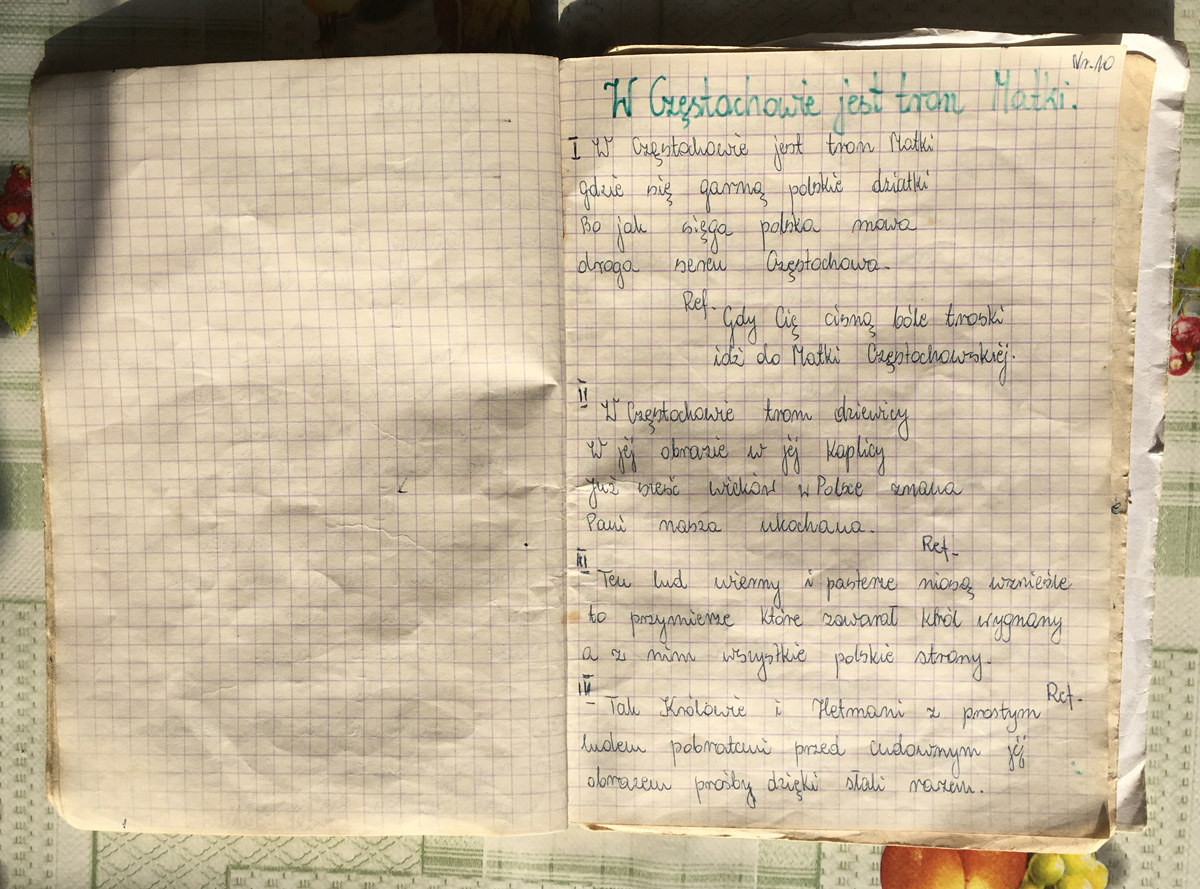 Nr. 10
W Częstochowie jest tron Matki.
I W Częstochowie jest tron Matki
gdzie się garną polskie dziatki
Bo jak sięga polska mowa
droga sercu Częstochowa.
Ref. Gdy Cię cisną bóle troski
idź do Matki Częstochowskiéj.
II
W Częstochowie tron dziewicy
W jéj obrazie w jéj Kaplicy
już sześć wieków w Polsce znana
Pani nasza ukochana.
Ref.
III
Ten lud wierny i pasterze niosą wznieśle
to przymierze które zawarał król wygnany
a z nim wszystkie polskie strony.
Ref.
IV
Tak Królowie i Hetmani z prostym
ludem pobratani przed cudownym jéj
obrazem prośby dzięki słali razem.